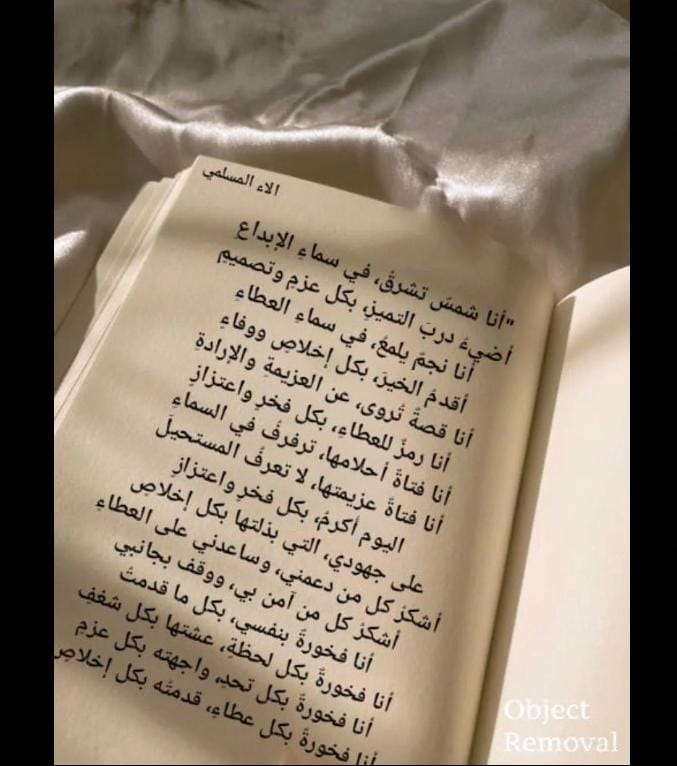 الاء المسلمي
"أنا شمسٌ تشرقُ، في سماءِ الإبداع
أضيءُ دربَ التميزِ، بكل عزمٍ وتصميمٍ
أنا نجمٌ يلمعُ، في سماءِ العطاءِ
أقدمُ الخيرَ، بكل إخلاصٍ ووفاءٍ
أنا قصةٌ تُروى، عن العزيمةِ والإرادةِ
أنا رمزٌ للعطاءِ، بكل فخرٍ واعتزازٍ
أنا فتاةٌ أحلامها، ترفرفُ في السماءِ
أنا فتاةٌ عزيمتها، لا تعرفُ المستحيلَ
اليوم أكرمُ، بكل فخرٍ واعتزازٍ
على جهودي، التي بذلتها بكل إخلاصٍ
أشكرُ كل من دعمني، وساعدني على العطاءِ
أشكرُ كل من آمن بي، ووقف بجانبي
أنا فخورةٌ بنفسي، بكل ما قدمتُ
أنا فخورةٌ بكل لحظةٍ، عشتها بكل شغفٍ
أنا فخورةٌ بكل تحدٍ، واجهته بكل عزمٍ
أنا فخورةٌ بكل عطاءٍ، قدمتُه بكل إخلاصٍ
Object
Removal